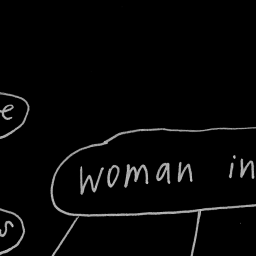 e
woman in
s